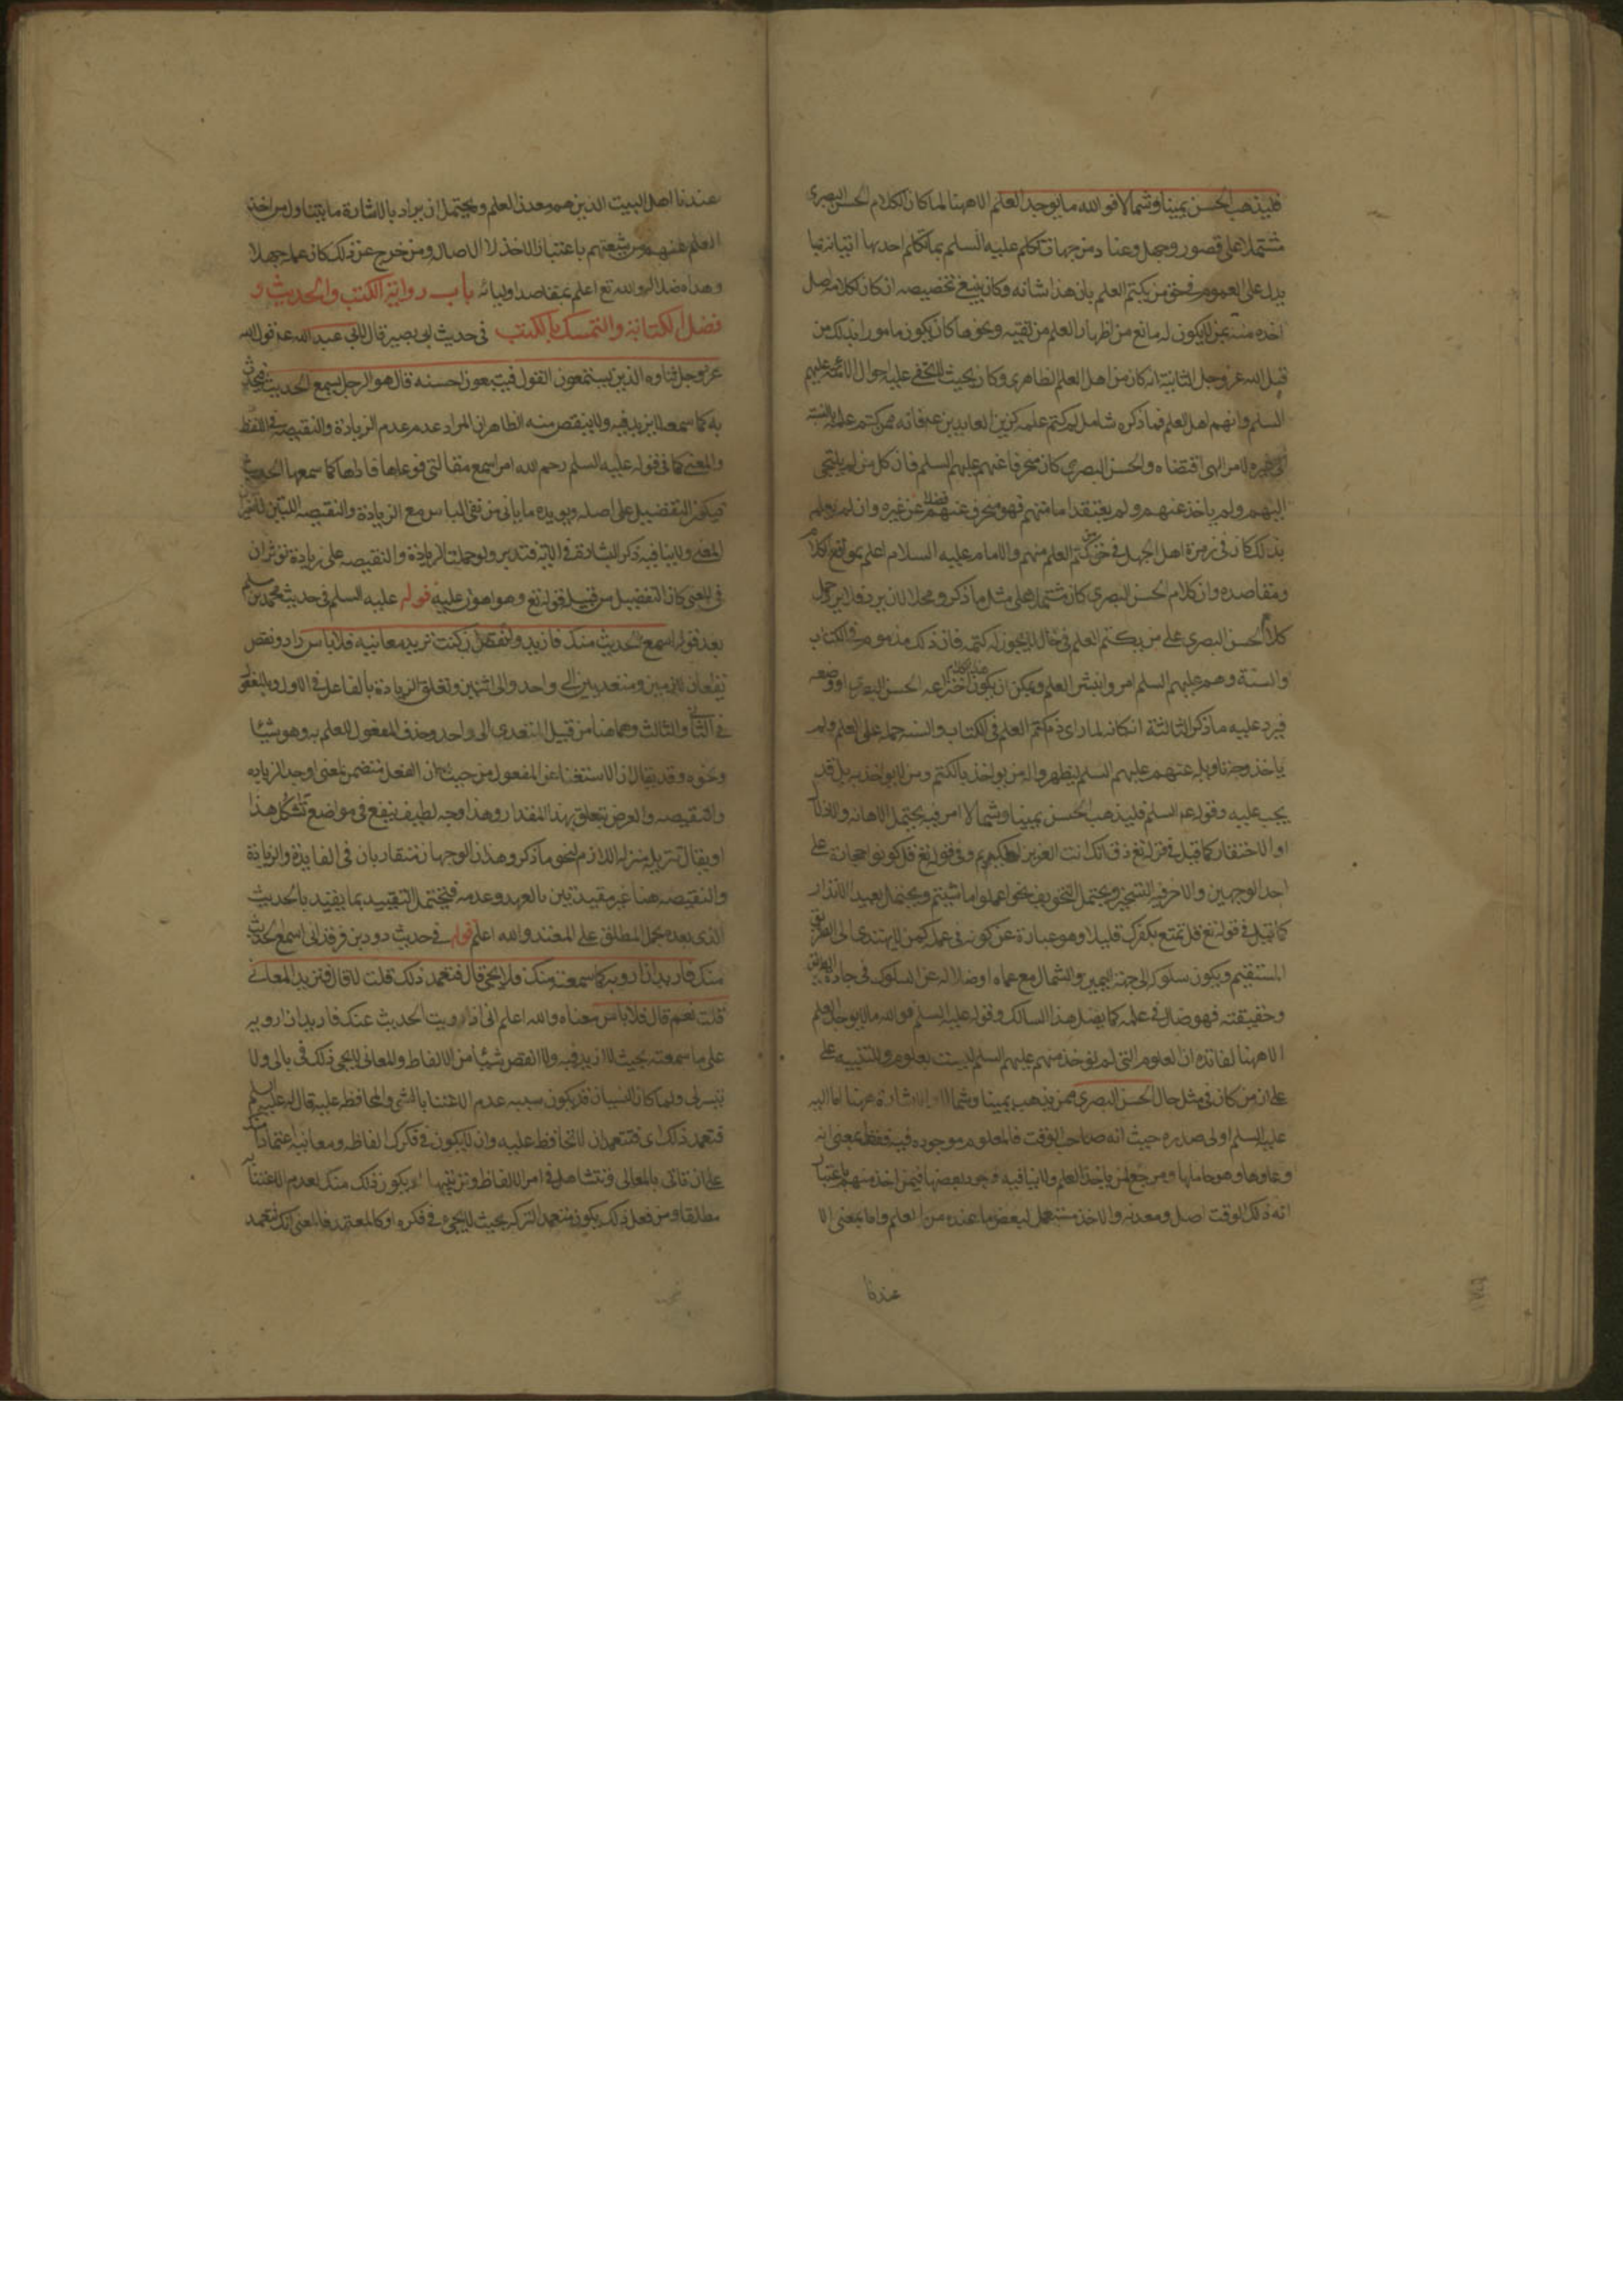 فليذهب الحسن يمينا وشمالا فو الله ما يوجد العلم الا ههنا لما كان الكلام الحسن البصري
مشتملا على قصور وجهل وعناد من جهات تكلم عليه السلم بما تكلم احديها اتيانه بما
يدل على العموم في حق من يكتم العلم بان هذا شانه وكان ينبغي تخصيصه ان كان كلاما صل
اخذه منه بمن لا يكون له مانع من اظهار العلم من تقيه ونحوها كان يكون مامورا بذلك من
قبل الله عز وجل الثانية انه كان من اهل العلم الظاهري وكان بحيث لا يخفى عليه احوال الائمة عليهم
السلم وانهم اهل العلم فما ذكره شامل لمن كتم علمه كزين العابدين عم فانه ممن كتم علمه بالنسبة
الى غيره لامر الهي اقتضاه والحسن البصري كان منحرفا عنهم عليهم السلم فان كل من لم يلتجي
اليهم ولم ياخذ عنهم ولم يعتقد امامتهم فهو منحرف عنهم فضلا عن غيره وان لم يعلم
بذلك كان في زمرة اهل الجهل في حق من كتم العلم منهم والامام عليه السلام اعلم بمواقع الكلام
ومقاصده وان كلام الحسن البصري كان مشتملا على مثل ما ذكر ومحلا لان يرد فلا يرد حمل
كلام الحسن البصري على من يكتم العلم في حال لا يجوز له كتمه فان ذلك مذموم في الكتاب
والسنة وهم عليهم السلم امروا بنشر العلم ويمكن ان يكون هذا الكلام اخترعه الحسن البصري او وضعه
فيرد عليه ما ذكر الثالثة انه كان لما راى ذم كتم العلم في الكتاب والسنه حمله على العلم ولم
ياخذ وجه تاويله عنهم عليهم السلم ليظهر له من يواخذ بالكتم ومن لا يواخذ به بل قد
يجب عليه وقوله عم السلم فليذهب الحسن يمينا وشمالا امر فيه يحتمل الاهانه والاذلال
او الاحتقار كما قيل في قوله تع ذق انك انت العزيز الكريم وفي قوله تع قل كونوا حجارة على
احد الوجهين والاخر فيه التسخير ويحتمل التخويف نحو اعملوا ما شيتم ويحتمل بعيد الانذار
كما قيل في قوله تع قل تمتع بكفرك قليلا وهو عبارة عن كونه في عمله كمن لا يهتدي الى الطريق
المستقيم ويكون سلوكه الى جهة اليمين والشمال مع عماه او ضلاله عن السلوك في جادة
وحقيقته فهو ضال في علمه كما يضل هذا السالك وقوله عليه السلم فو الله ما يوجد العلم
الا ههنا لفائده ان العلوم التي لم توخذ منهم عليهم السلم ليست بعلوم والتنبيه على
على ان من كان في مثل حال الحسن البصري ممن يذهب يمينا وشمالا والاشارة بههنا اما اليه
عليه السلم او لى صدره حيث انه صاحب الوقت فالعلوم موجوده فيه فقط بمعنى انه
وعاوها وهو حاملها ومرجع لمن ياخذ العلم ولا ينافيه وجود بعضها فيمن اخذ منهم باعتبار
انه ذلك الوقت اصل ومعدنه والاخذ مستعمل لبعض ما عنده من العلم واما بمعنى الا
عندنا
عندنا اهل البيت الذين هم معدن العلم ويحتمل ان يراد بالاشارة ما يتناول من اخذ
العلم عنهم من شيعتهم باعتبار الاخذ لا الاصاله ومن خرج عن ذلك كان علمه جهلا
وهداه ضلالا والله تع اعلم بمقاصد اوليائه باب رواية الكتب والحديث و
فضل الكتابة والتمسك بالكتب في حديث ابي بصير قال لابي عبد الله عم قول الله
عز وجل ثناوه الذين يستمعون القول فيتبعون احسنه قال هو الرجل يسمع الحديث فيحدث
به كما سمعه لا يزيد فيه ولا ينقص منه الظاهر ان المراد عدم الزيادة والنقيصه في اللفظ
والمعنى كما في قوله عليه السلم رحم الله امرا سمع مقالتي فوعاها فاداها كما سمعها الحديث
فيكون التفضيل على اصله ويويده ما ياتي من نفي الباس مع الزيادة والنقيصه اللتين لا تغير
المعنى ولا ينافيه ذكر البشارة في الاية فتدبر ولو حملت الزيادة والنقيصه على زيادة توثر ان
في المعنى كان التفضيل من قبيل قوله تع وهو اهون عليه قوله عليه السلم في حديث محمد بن مسلم
بعد قوله اسمع الحديث منك فازيد وانقص ان كنت تريد معانيه فلا باس زاد ونقص
يقعان لازمين ومتعديين الى واحد والى اثنين وتعلق الزيادة بالفاعل في الاول وبالمفعول
في الثاني والثالث وهما هنا من قبيل المتعدى الى واحد وحذف المفعول للعلم به وهو شيئا
ونحوه وقد يقال ان الاستغنا عن المفعول من حيث ان الفعل متضمن لمعنى اوجد الزياده
والنقيصه والغرض يتعلق بهذا المقدار وهذا وجه لطيف ينفع في مواضع تشاكل هذا
او يقال تنزيله منزله اللازم لنحو ما ذكر وهذان الوجهان متقاربان في الفايدة والزيادة
والنقيصه هنا غير مقيدتين بالعهد وعدمه فيحتمل التقييد بما يفيد بالحديث
الذي بعده بحمل المطلق على المقيد والله اعلم قوله في حديث داود بن فرقد اني اسمع الحديث
منك فاريد ان ارويه كما سمعته منك فلا يجي قال فتعمد ذلك قلت لا قال فتريد المعاني
قلت نعم قال فلا باس معناه والله اعلم اني اذا رويت الحديث عنك فاريد ان ارويه
على ما سمعته بحيث لا ازيد فيه ولا انقص شيئا من الالفاظ والمعاني لا يجي ذلك في بالى ولا
يتيسر لى ولما كان النسيان قد يكون سببه عدم الاعتنا بالشي والمحافظه عليه قال له عليه السلم
فتعمد ذلك اى فتتعمد ان لا تحافظ عليه وان لا يكون في فكرك الفاظه ومعانيه اعتمادا منك
على ان تاتى بالمعانى وتتشاهل في امر الالفاظ وترتيبها او يكون ذلك منك لعدم الاعتنا به
مطلقا ومن فعل ذلك يكون متعمد التركه بحيث لا يجيء في فكره او كالمعتمد فالمعنى انك تتعمد